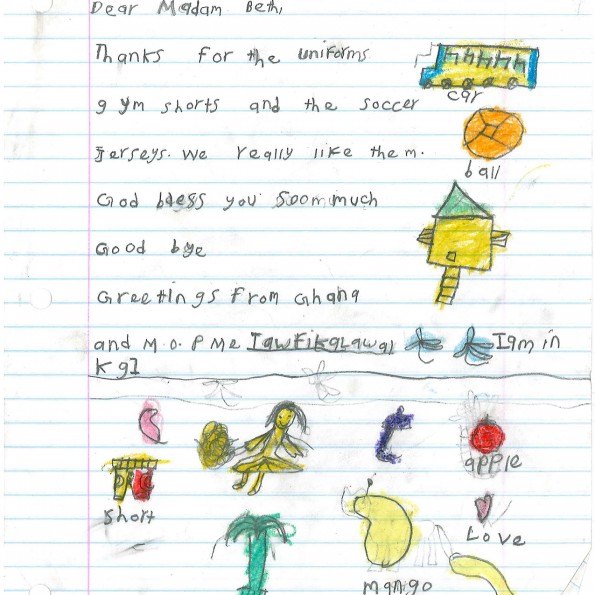 Dear Madam Beth,
Thanks for the uniforms
car
gym shorts and the soccer
jerseys. We really like them.
ball
God bless you Soommuch
Good bye
Greetings from Ghana
and M.O.P Me Iam in
KgI
apple
short
Love
mango